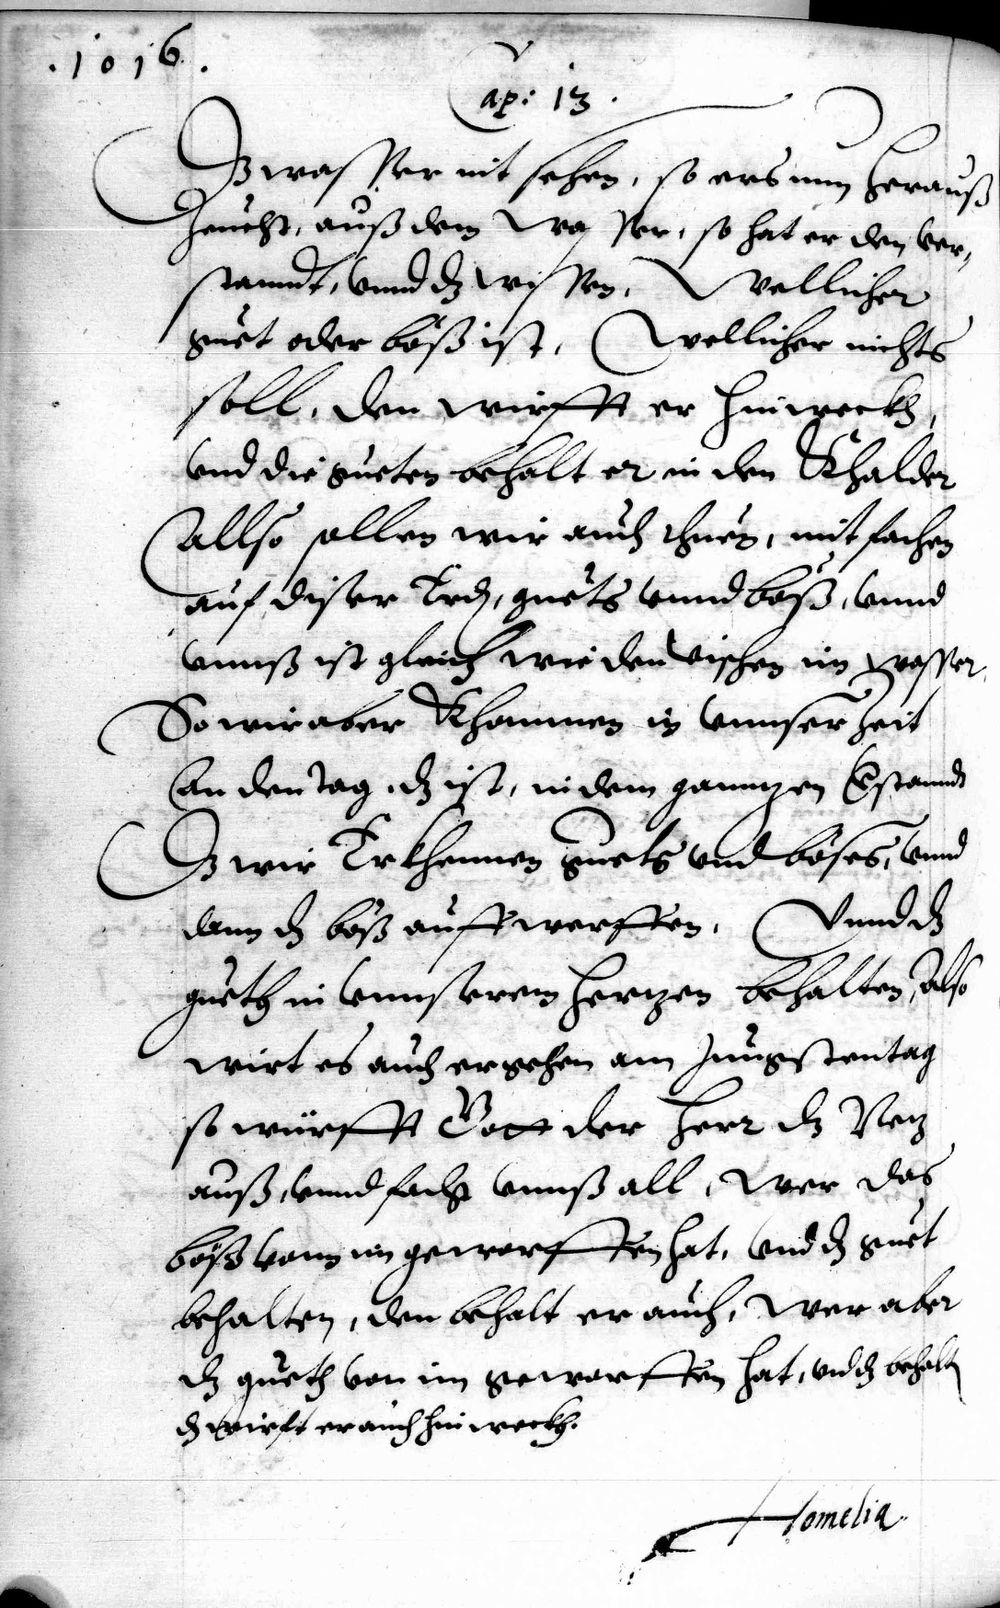 .1016.
Cap: 13.
Dz wasser nit sehen, so ers nun herauß
zeucht, auß dem wasser, so hat er den ver,
stanndt, vnnd dz wissen, wellicher
guet oder böß ist, wellicher nichts
soll, den wirfft er hinweckh,
vnd die gueten behalt er in den Khalder
Allso sollen wir auch thuen, mit fachen
auf diser Erd, guets vnnd böß, vnnd
vnnß ist gleich wie den vischen im wasser,
So wir aber Khommen in vnnser Zeit
An den tag, dz ist, in dem ganntzen Estanndt
Dz wir Erkhennen guets vnd böses, vnnd
dann dz böß außwerffen, Vnnd dz
gueth in vnnserem hertzen behalten, Also
wirt es auch ergehen am Jungstentag
so würfft Gott der herr dz Netz
auß, vnnd facht vnnß all, wer das
böß vonn im geworffen hat, vnd dz guet
behalten, den behalt er auch, wer aber
dz gueth von im geworffen hat, vnd dz behalt
dz wirft er auch hinweckh.
Homelia.